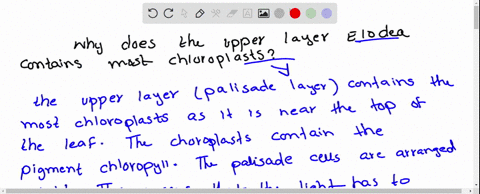 Why does the upper layer Elodea
contains most chloroplasts?
the upper layer (palisade layer) contains the
most chloroplasts as it is near the top of
the leaf. The choroplasts contain the
pigment chloropyll. The palisade cells are arranged
the light has to